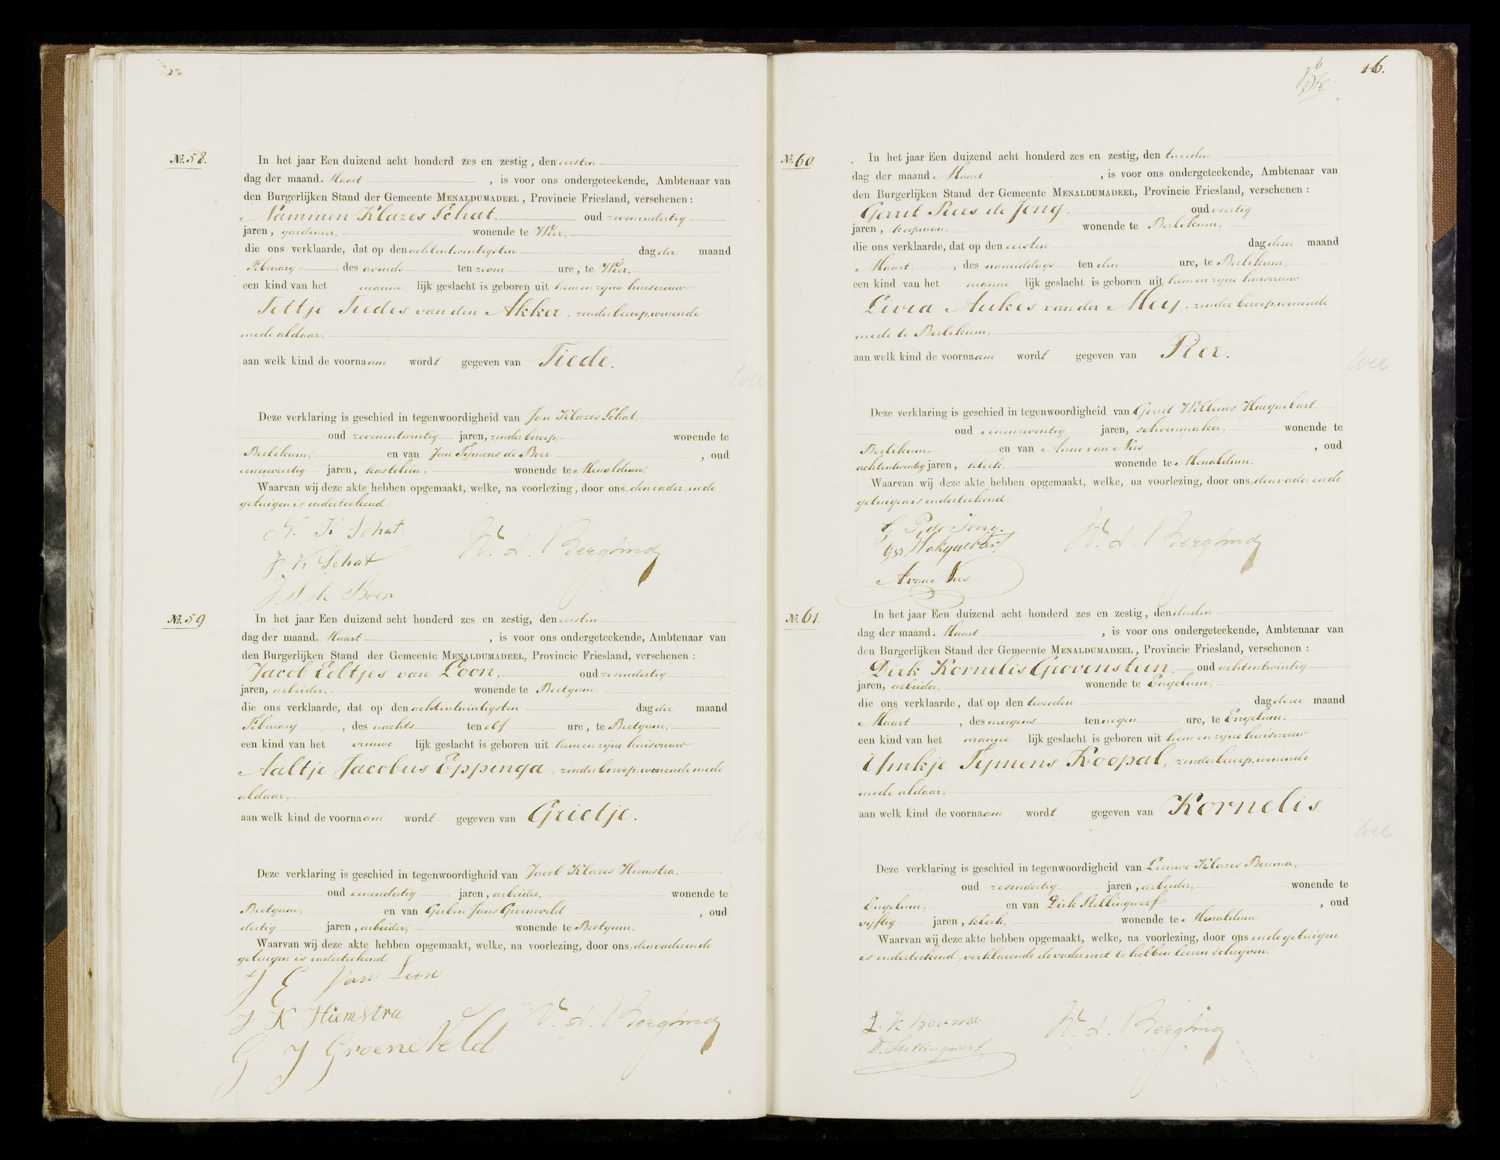 No. 58.
In het jaar Een duizend acht honderd zes en zestig, den eersten
dag der maand Maart, is voor ons ondergeteekende, Ambtenaar van
den Burgerlijken Stand der Gemeente MENALDUMADEEL, Provincie Friesland, verschenen:
Nammen Klazes Schat, oud
jaren, gardenier, wonende te Wier,
die ons verklaarde, dat op den achtentwintigsten dag der maand
February des avonds ten ure, te Wier,
een kind van het manne lijk geslacht is geboren uit hem en zyne huisvrouw
Teltje Tiedes van den Akker, zonder beroep, wonende
mede aldaar,
aan welk kind de voornaam wordt gegeven van Tiede.
Deze verklaring is geschied in tegenwoordigheid van Jan Klazes Schat
oud jaren, zonder beroep, wonende te
Berlikum, en van Jan Tymens de Boer, oud
jaren, kastelein, wonende te Menaldum.
Waarvan wij deze akte hebben opgemaakt, welke, na voorlezing, door ons, den vader en de
getuigen is onderteekend.
N. K Schat
J K Schat
J T de Boer
W. L. Bergsma
No. 59
In het jaar Een duizend acht honderd zes en zestig, den eersten
dag der maand Maart, is voor ons ondergeteekende, Ambtenaar van
den Burgerlijken Stand der Gemeente MENALDUMADEEL, Provincie Friesland, verschenen:
Jacob Eeltjes van Loon, oud
jaren, arbeider, wonende te Beetgum,
die ons verklaarde, dat op den achtentwintigsten dag der maand
February, des nachts ten elf ure, te Beetgum,
een kind van het vrouwe lijk geslacht is geboren uit hem en zyne huisvrouw
Aaltje Jacobus Eppinga, zonder beroep, wonende mede
aldaar,
aan welk kind de voornaam wordt gegeven van Grietje.
Deze verklaring is geschied in tegenwoordigheid van Jacob Klazes Hiemstra,
oud jaren, arbeider, wonende te
Beetgum, en van Gerben Jans Groeneveld, oud
dertig jaren, arbeider, wonende te Beetgum.
Waarvan wij deze akte hebben opgemaakt, welke, na voorlezing, door ons, den vader en de
getuigen is onderteekend.
J E van Loon
J K Hiemstra
G J Groeneveld
W. L. Bergsma
16.
No. 60
In het jaar Een duizend acht honderd zes en zestig, den tweeden
dag der maand Maart, is voor ons ondergeteekende, Ambtenaar van
den Burgerlijken Stand der Gemeente MENALDUMADEEL, Provincie Friesland, verschenen:
Gerrit Piers de Jong, oud veertig
jaren, koopman, wonende te Berlikum,
die ons verklaarde, dat op den eersten dag dezer maand
Maart, des namiddags ten een ure, te Berlikum,
een kind van het manne lijk geslacht is geboren uit hem en zyne huisvrouw
Aukes van der Mey, zonder beroep, wonende
mede te Berlikum,
aan welk kind de voornaam wordt gegeven van Pier.
Deze verklaring is geschied in tegenwoordigheid van Gerrit Willems
oud jaren, schoenmaker, wonende te
Berlikum, en van Arum van Nes, oud
achtentwintig jaren, klerk, wonende te Menaldum.
Waarvan wij deze akte hebben opgemaakt, welke, na voorlezing, door ons, den vader en de
getuigen is onderteekend.
G P de Jong.
A van Nes
W. L. Bergsma
No. 61
In het jaar Een duizend acht honderd zes en zestig, den derden
dag der maand Maart, is voor ons ondergeteekende, Ambtenaar van
den Burgerlijken Stand der Gemeente MENALDUMADEEL, Provincie Friesland, verschenen:
Dirk Kornelis Grovenstein, oud achtentwintig
jaren, arbeider, wonende te Engelum,
die ons verklaarde, dat op den tweeden dag dezer maand
Maart, des morgens ten negen ure, te Engelum,
een kind van het manne lijk geslacht is geboren uit hem en zyne huisvrouw
Ymkje Tymens Koopal, zonder beroep, wonende
mede aldaar,
aan welk kind de voornaam wordt gegeven van Kornelis
Deze verklaring is geschied in tegenwoordigheid van Lieuwe Klazes Bouma,
oud zesendertig jaren, arbeider, wonende te
Engelum, en van Dirk Stellingwerf, oud
vijftig jaren, klerk, wonende te Menaldum
Waarvan wij deze akte hebben opgemaakt, welke, na voorlezing, door ons en de getuigen
is onderteekend, verklarende de vader niet te hebben leeren schrijven.
L. K Bouma
D. Stellingwerf
W. L. Bergsma